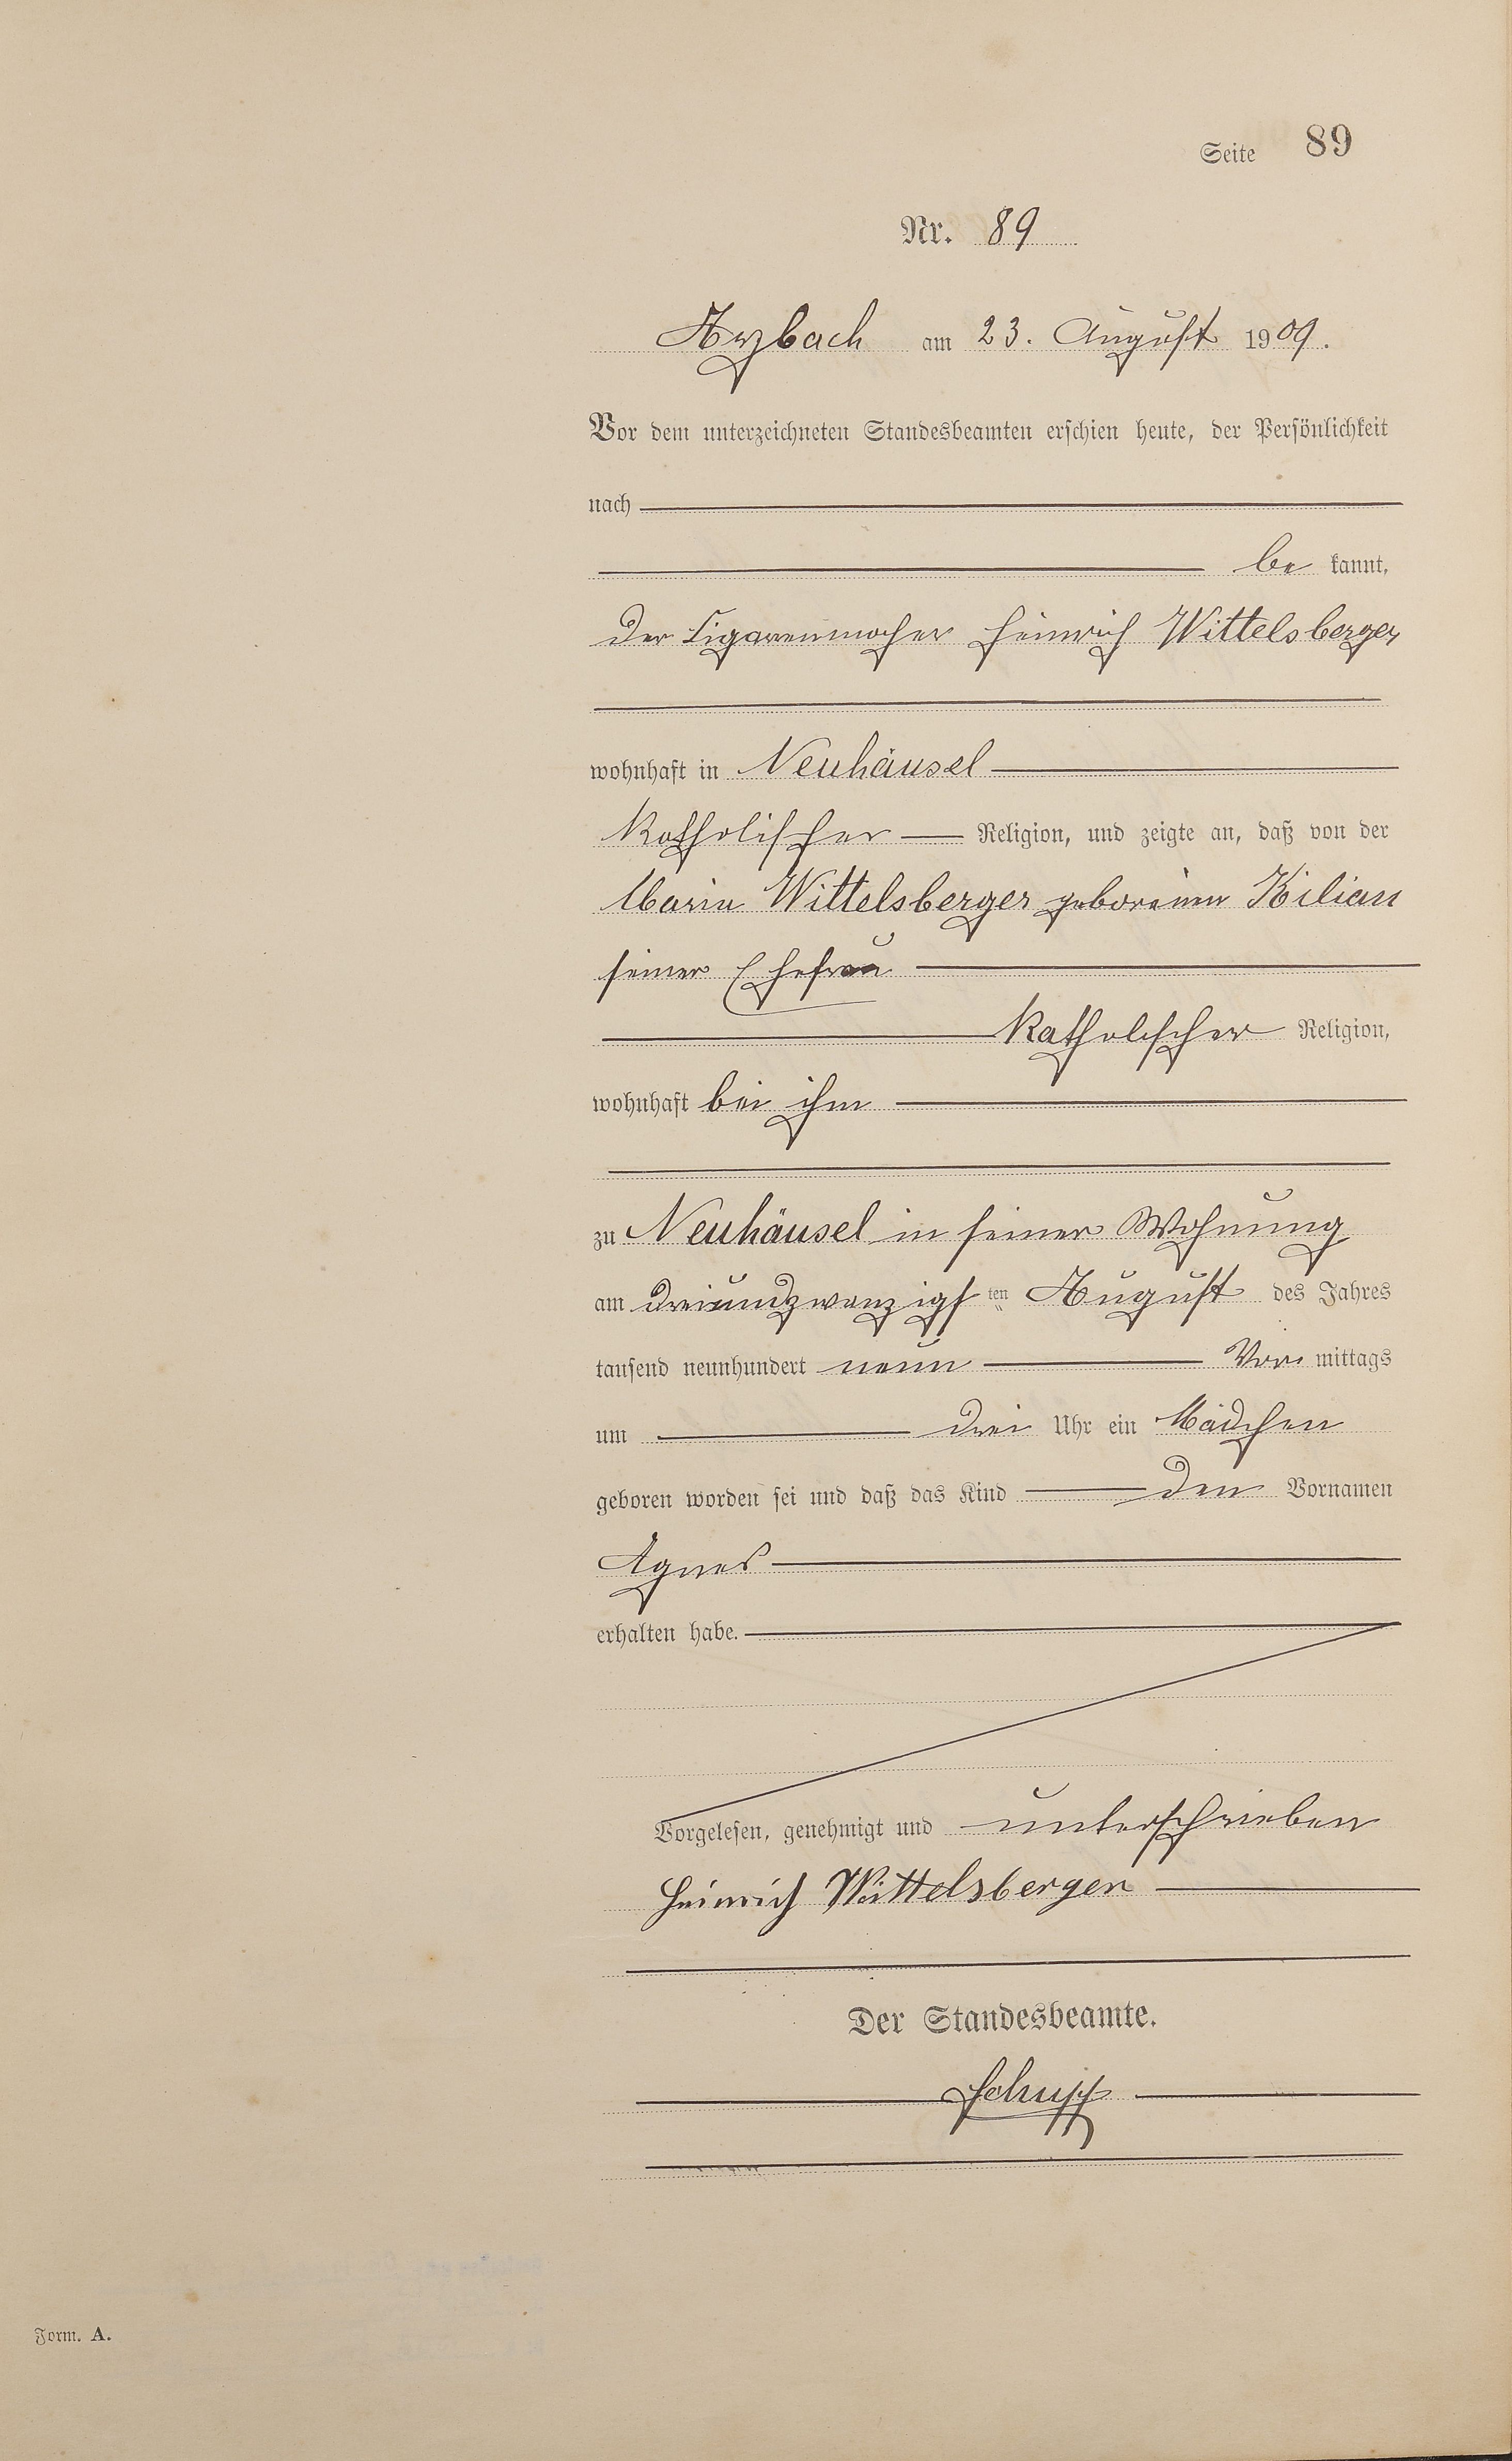 Seite 89
Nr. 89
Arzbach am 23. August 1909.
Vor dem unterzeichneten Standesbeamten erschien heute, der Persönlichkeit
nach
be kannt,
der Cigarrenmacher Heinrich Wittelsberger
wohnhaft in Neuhäusel
katholischer Religion, und zeigte an, daß von der
Maria Wittelsberger geborenen Kilian
seiner Ehefrau
katholischer Religion,
wohnhaft bei ihm
zu Neuhäusel in seiner Wohnung
am dreiundzwanzigsten August des Jahres
tausend neunhundert neun Vor mittags
um drei Uhr ein Mädchen
geboren worden sei und daß das Kind den Vornamen
Agnes
erhalten habe.
Vorgelesen, genehmigt und unterschrieben
Heinrich Wittelsberger
Der Standesbeamte.
Schupp
Form. A.